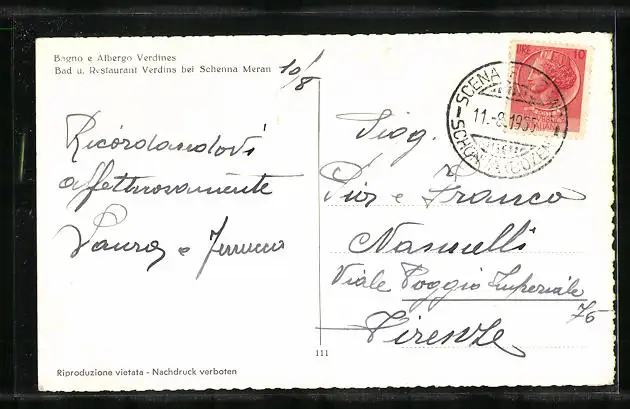 Bagno e Albergo Verdines
Bad u. Restaurant Verdins bei Schenna Meran
10/8
Ricordandovi
affettuosamente
Laura e Ferruccio
LIRE 10
SCENA
11.-8.195
SCHÖNNA (BOZEN)
Sigg.
Pior e Franco
Nannelli
Viale Poggio Imperiale
Firenze
111
Riproduzione vietata - Nachdruck verboten